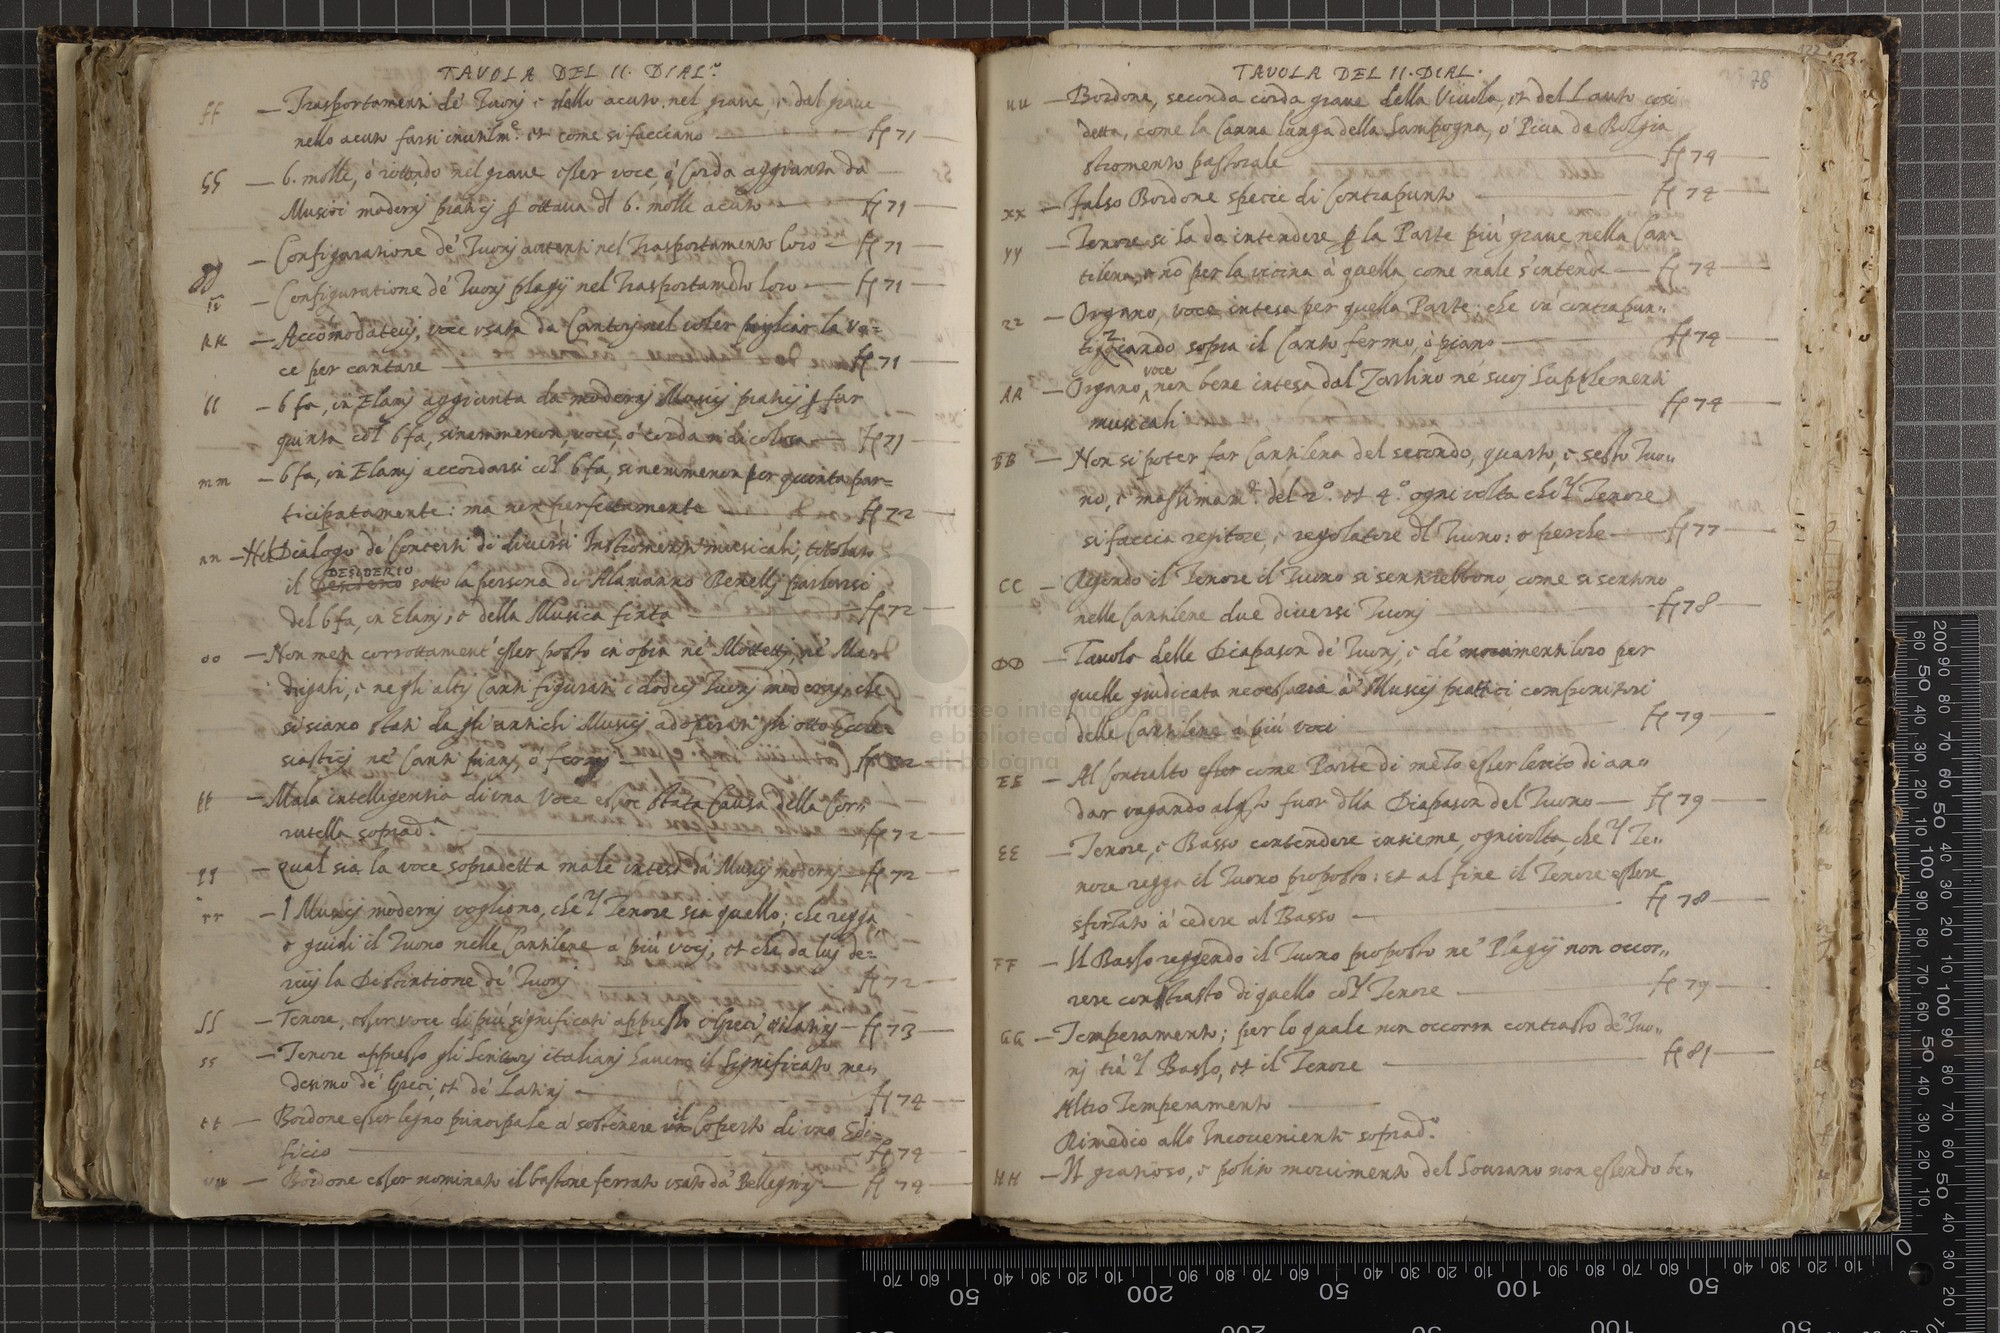 TAVOLA DEL II. DIAL.
ff — Trasportamenti de' Tuonj e dallo acuto nel graue, e dal graue
nello acuto farsi inutilmᵉ. et come si facciano — 71
gg — b. molle, ò rotondo nel graue esser voce, ò Corda aggiunta da
Musici modernj pratici ottaua b. molle acuto — 71
— Configuratione de' Tuonj autenti nel Trasportamento loro — 71
ii — Configuratione de' Tuonj plagij nel Trasportamento loro — 71
KK — Accomodateuj, voce vsata da Cantorj nel voler pigliar la Vo=
ce per cantare — 71
ll — b fa, in Elamj aggiunta da modernj Musicj pratici far
quinta b fa, sinemmenon, voce, ò corda ridicolosa — 71
mm — b fa, in Elamj accordarsi b fa, sinemmenon per quinta par=
ticipatamente: ma non perfettamente — 72
nn — Nel Dialogo de' Concerti di diuersi Instromenti musicali, titolato
DESIDERIO
il sotto la persona di Alamanno Benellj parlarsi
del b fa, in Elamj; e della Musica finta — 72
oo — Non men corrottament' esser posto in ne' Mottettj, ne' Mar
drigali, e negli altrj Canti figurati i dodecj Tuonj modernj, che
si siano stati da gli antichi Musicj adoperati gli otto Eccle=
siasticj ne' Canti pianj, ò fermj — 72
— Mala intelligentia di vna Voce essere stata Causa della Corr
ruttella soprad.ᵃ — 72
qq — Qual sia la voce sopradetta male intesa dà Musicj modernj — 72
rr — I Musicj modernj vogliono, che 'l Tenore sia quello; che regga,
e guidi il Tuono nelle Cantilene a più vocj, et che da luj de=
riuj la Distintione de' Tuonj — 72
ſſ — Tenore, esser voce di più significati appresso Greci, Latinj — 73
ss — Tenore appresso gli Scrittorj italianj hauere il significato me,,
desimo de' Greci, et de' Latinj — 74
tt — Bordone esser legno principale a' sostenere il Coperto di vno Edi=
ficio — 74
uu — Bordone esser nominato il bastone ferrato vsato da' Pellegrinj — 74
TAVOLA DEL II. DIAL.
78
uu — Bordone, seconda corda graue della Viuola, et del Lauto così
detta, come la Canna lunga della Sampogna, ò Piua da Bolgia
stromento pastorale — 74
xx — Falso Bordone specie di Contrapunto — 74
yy — Tenore si ha da intendere la Parte più graue nella Can=
tilena, e nō per la vicina à quella come male s'intende — 74
zz — Organo, voce intesa per quella Parte; che và contrapun,,
tizzando sopra il Canto fermo, ò piano — 74
voce
AA — Organo, non bene intesa dal Zarlino ne' suoj Supplementi
musicali — 74
BB — Non si poter far Cantilena del secondo, quarto, e sesto Tuo,,
no, e massimamᵉ. del 2º. et 4º. ogni volta che 'l Tenore
si faccia rettore, e regolatore Tuono: e perche — 77
CC — Regendo il Tenore il Tuono si sentirebbono, come si sentino
nelle Cantilene due diuersi Tuonj — 78
DD — Tauola delle Diapason de' Tuonj, e de' mouimenti loro per
quelle giudicata necessaria à Musicj prattici compositori
delle Cantilene à più voci — 79
EE — Al Contralto esser come Parte di mezo esser lecito di an,,
dar vagando fuor Diapason del Tuono — 79
EE — Tenore, e Basso contendere insieme, ogniuolta che 'l Te,,
nore regga il Tuono proposto: et al fine il Tenore essere
sforzato a' cedere al Basso — 78
FF — Il Basso reggendo il Tuono proposto ne' Plagij non occor,,
rere contrasto di quello 'l Tenore — 79
GG — Temperamento; per lo quale non occorra contrasto de' Tuo,,
nj trà 'l Basso, et il Tenore — 81
Altro Temperamento —
Rimedio allo Inconueniente soprad.º
HH — Il gratioso, e polito mouimento del Sourano non essendo be,,
museo internazionale
e biblioteca
di bologna